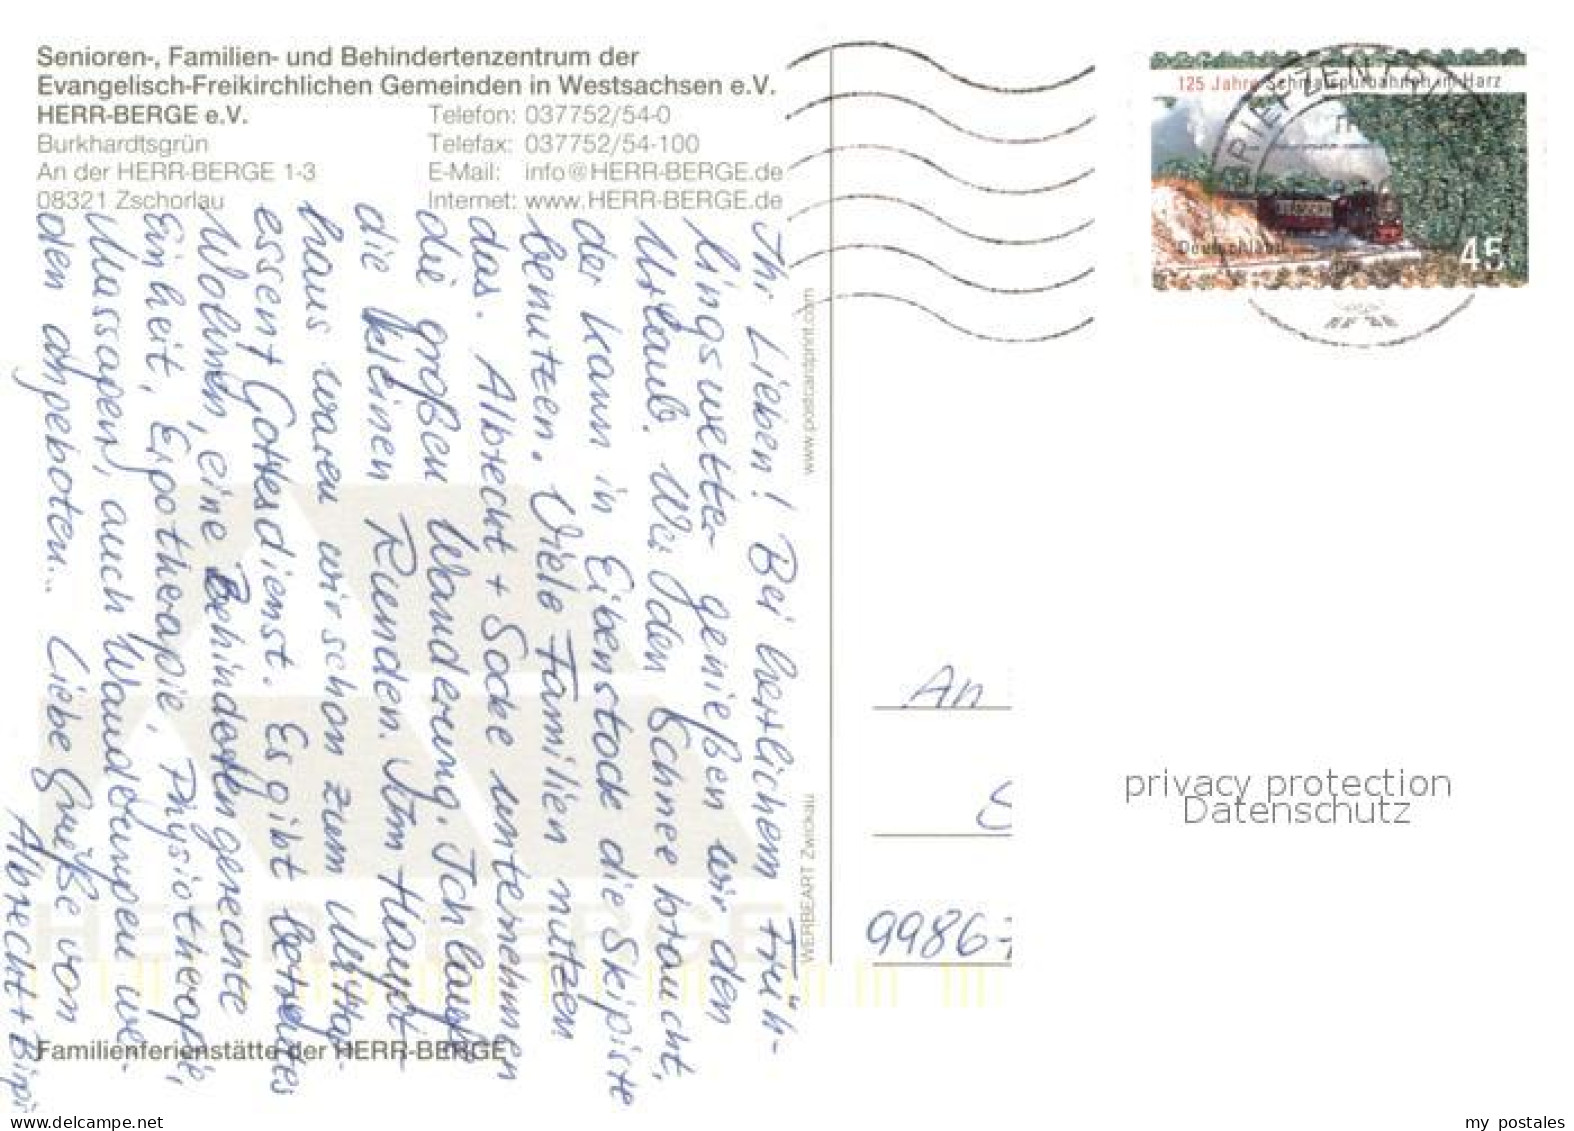 Senioren-, Familien- und Behindertenzentrum der
Evangelisch-Freikirchlichen Gemeinden in Westsachsen e.V.
HERR-BERGE e.V.
Burkhardtsgrün
An der HERR-BERGE 1-3
08321 Zschorlau
Telefon: 037752/54-0
Telefax: 037752/54-100
E-Mail: info@HERR-BERGE.de
Internet: www.HERR-BERGE.de
125 Jahre Schmalspurbahnen im Harz
Deutschland
45
BRIEFZENT
Ihr Lieben! Bei herrlichem Früh-
lingswetter genießen wir den
Urlaub. Wer den Schnee braucht,
der kann in Eibenstock die Skipiste
benutzen. Viele Familien nutzen
das. Albrecht + Socke unternehmen
die großen Wanderung. Ich laufe
die kleinen Runden. Im Haupt-
haus waren wir schon zum Mittag-
essen + Gottesdienst. Es gibt betreutes
Wohnen, eine Behindertengerechte
Einheit, Ergotherapie, Physiotherapie,
Massagen, auch Wanderungen we-
den angeboten... Liebe Grüße von
Albrecht + Birgi
www.postcardprint.com
WERBEART Zwickau
An
99867
privacy protection
Datenschutz
HERR-BERGE
Familienferienstätte der HERR-BERGE
www.delcampe.net
my postales